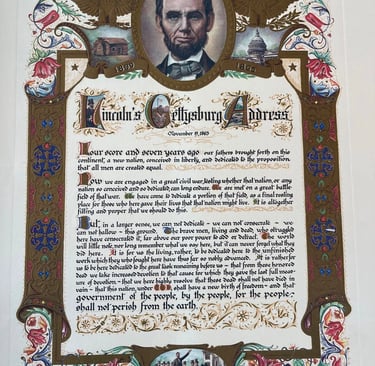 1809
Lincoln's Gettysburg Address
November 19, 1863
Four score and seven years ago our fathers brought forth on this
continent, a new nation, conceived in liberty, and dedicated to the proposition
that all men are created equal.
Now we are engaged in a great civil war, testing whether that nation, or any
nation so conceived and so dedicated, can long endure. We are met on a great battle-
field of that war. We have come to dedicate a portion of that field, as a final resting
place for those who here gave their lives that that nation might live. It is altogether
fitting and proper that we should do this.
But, in a larger sense, we can not dedicate - we can not consecrate - we
can not hallow - this ground. The brave men, living and dead, who struggled
here have consecrated it, far above our poor power to add or detract. The world
will little note, nor long remember what we say here, but it can never forget what they
did here. It is for us the living, rather, to be dedicated here to the unfinished
work which they who fought here have thus far so nobly advanced. It is rather for
us to be here dedicated to the great task remaining before us - that from these honored
dead we take increased devotion to that cause for which they gave the last full meas-
ure of devotion - that we here highly resolve that these dead shall not have died in
vain - that this nation, under God, shall have a new birth of freedom - and that
government of the people, by the people, for the people,
shall not perish from the earth.